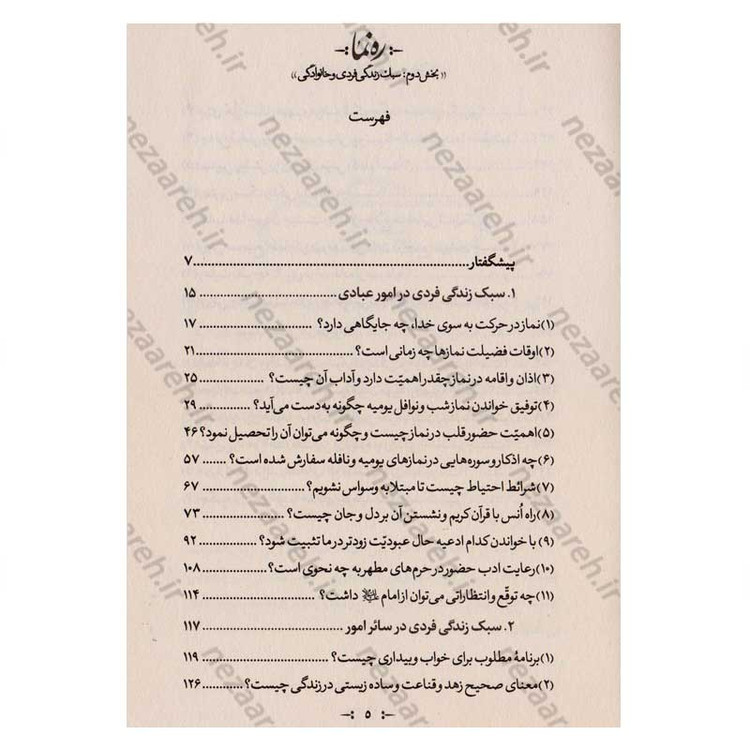 ره نما
«بخش دوم: سبک زندگی فردی و خانوادگی»
فهرست
پیشگفتار ۷
۱. سبک زندگی فردی در امور عبادی ۱۵
(۱) نماز در حرکت به سوی خدا، چه جایگاهی دارد؟ ۱۷
(۲) اوقات فضیلت نمازها چه زمانی است؟ ۲۱
(۳) اذان و اقامه در نماز چقدر اهمیّت دارد و آداب آن چیست؟ ۲۵
(۴) توفیق خواندن نماز شب و نوافل یومیه چگونه به دست می‌آید؟ ۲۹
(۵) اهمیّت حضور قلب در نماز چیست و چگونه می‌توان آن را تحصیل نمود؟ ۴۶
(۶) چه اذکار و سوره‌هایی در نمازهای یومیه و نافله سفارش شده است؟ ۵۷
(۷) شرائط احتیاط چیست تا مبتلا به وسواس نشویم؟ ۶۷
(۸) راه اُنس با قرآن کریم و نشستن آن بر دل و جان چیست؟ ۷۳
(۹) با خواندن کدام ادعیه حال عبودیّت زودتر در ما تثبیت شود؟ ۹۲
(۱۰) رعایت ادب حضور در حرم‌های مطهر به چه نحوی است؟ ۱۰۸
(۱۱) چه توقّع و انتظاراتی می‌توان از امام داشت؟ ۱۱۴
۲. سبک زندگی فردی در سائر امور ۱۱۷
(۱) برنامهٔ مطلوب برای خواب و بیداری چیست؟ ۱۱۹
(۲) معنای صحیح زهد و قناعت و ساده زیستی در زندگی چیست؟ ۱۲۶
۵
nezaareh.ir